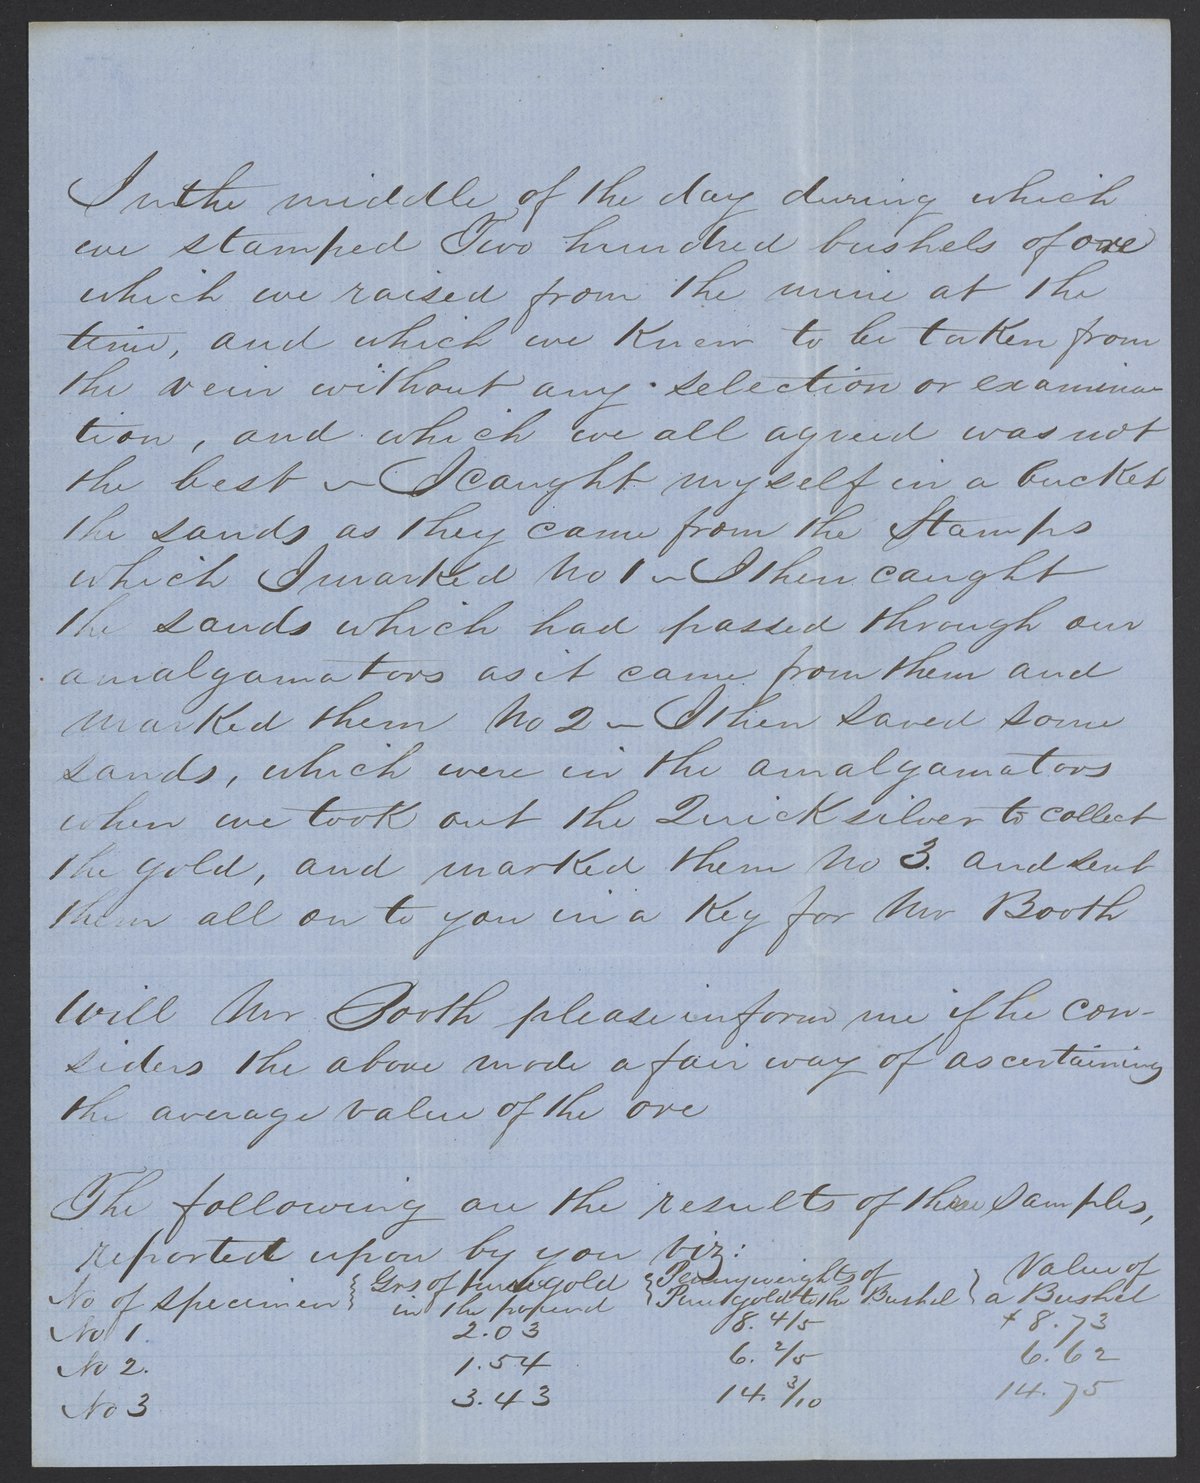 In the middle of the day during which
we stamped Two hundred bushels of ore
which we raised from the mine at the
time, and which we Knew to be taken from
the vein without any selection or examina-
tion, and which we all agreed was not
the best – I caught myself in a bucket
the sands as they came from the Stamps
which I marked No 1 – I then caught
the sands which had passed through our
amalgamators as it came from them and
marked them No 2 – I then saved some
sands, which were in the amalgamators
when we took out the Quicksilver to collect
the gold, and marked them No 3. and sent
them all on to you in a Keg for Mr Booth
Will Mr Booth please inform me if he con-
siders the above mode a fair way of ascertaining
the average value of the ore
The following are the results of these Samples,
reported upon by you viz:
No of specimen { Grs. of pure gold in the pound { Pennyweights of Pure gold to the Bushel } Value of a Bushel
No 1. 2.03 8. 4/5 $8.73
No 2. 1.54 6. 2/5 6.62
No 3 3.43 14. 3/10 14.75